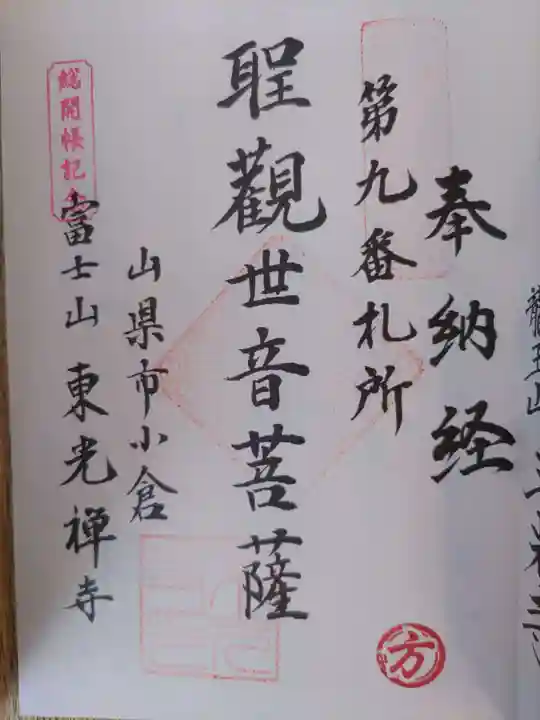 奉納経
第九番札所
聖觀世音菩薩
山県市小倉
富士山 東光禅寺
総開帳記念
方
龍王山